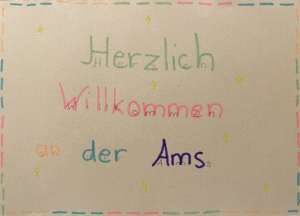 Herzlich
Willkommen
an der Ams.